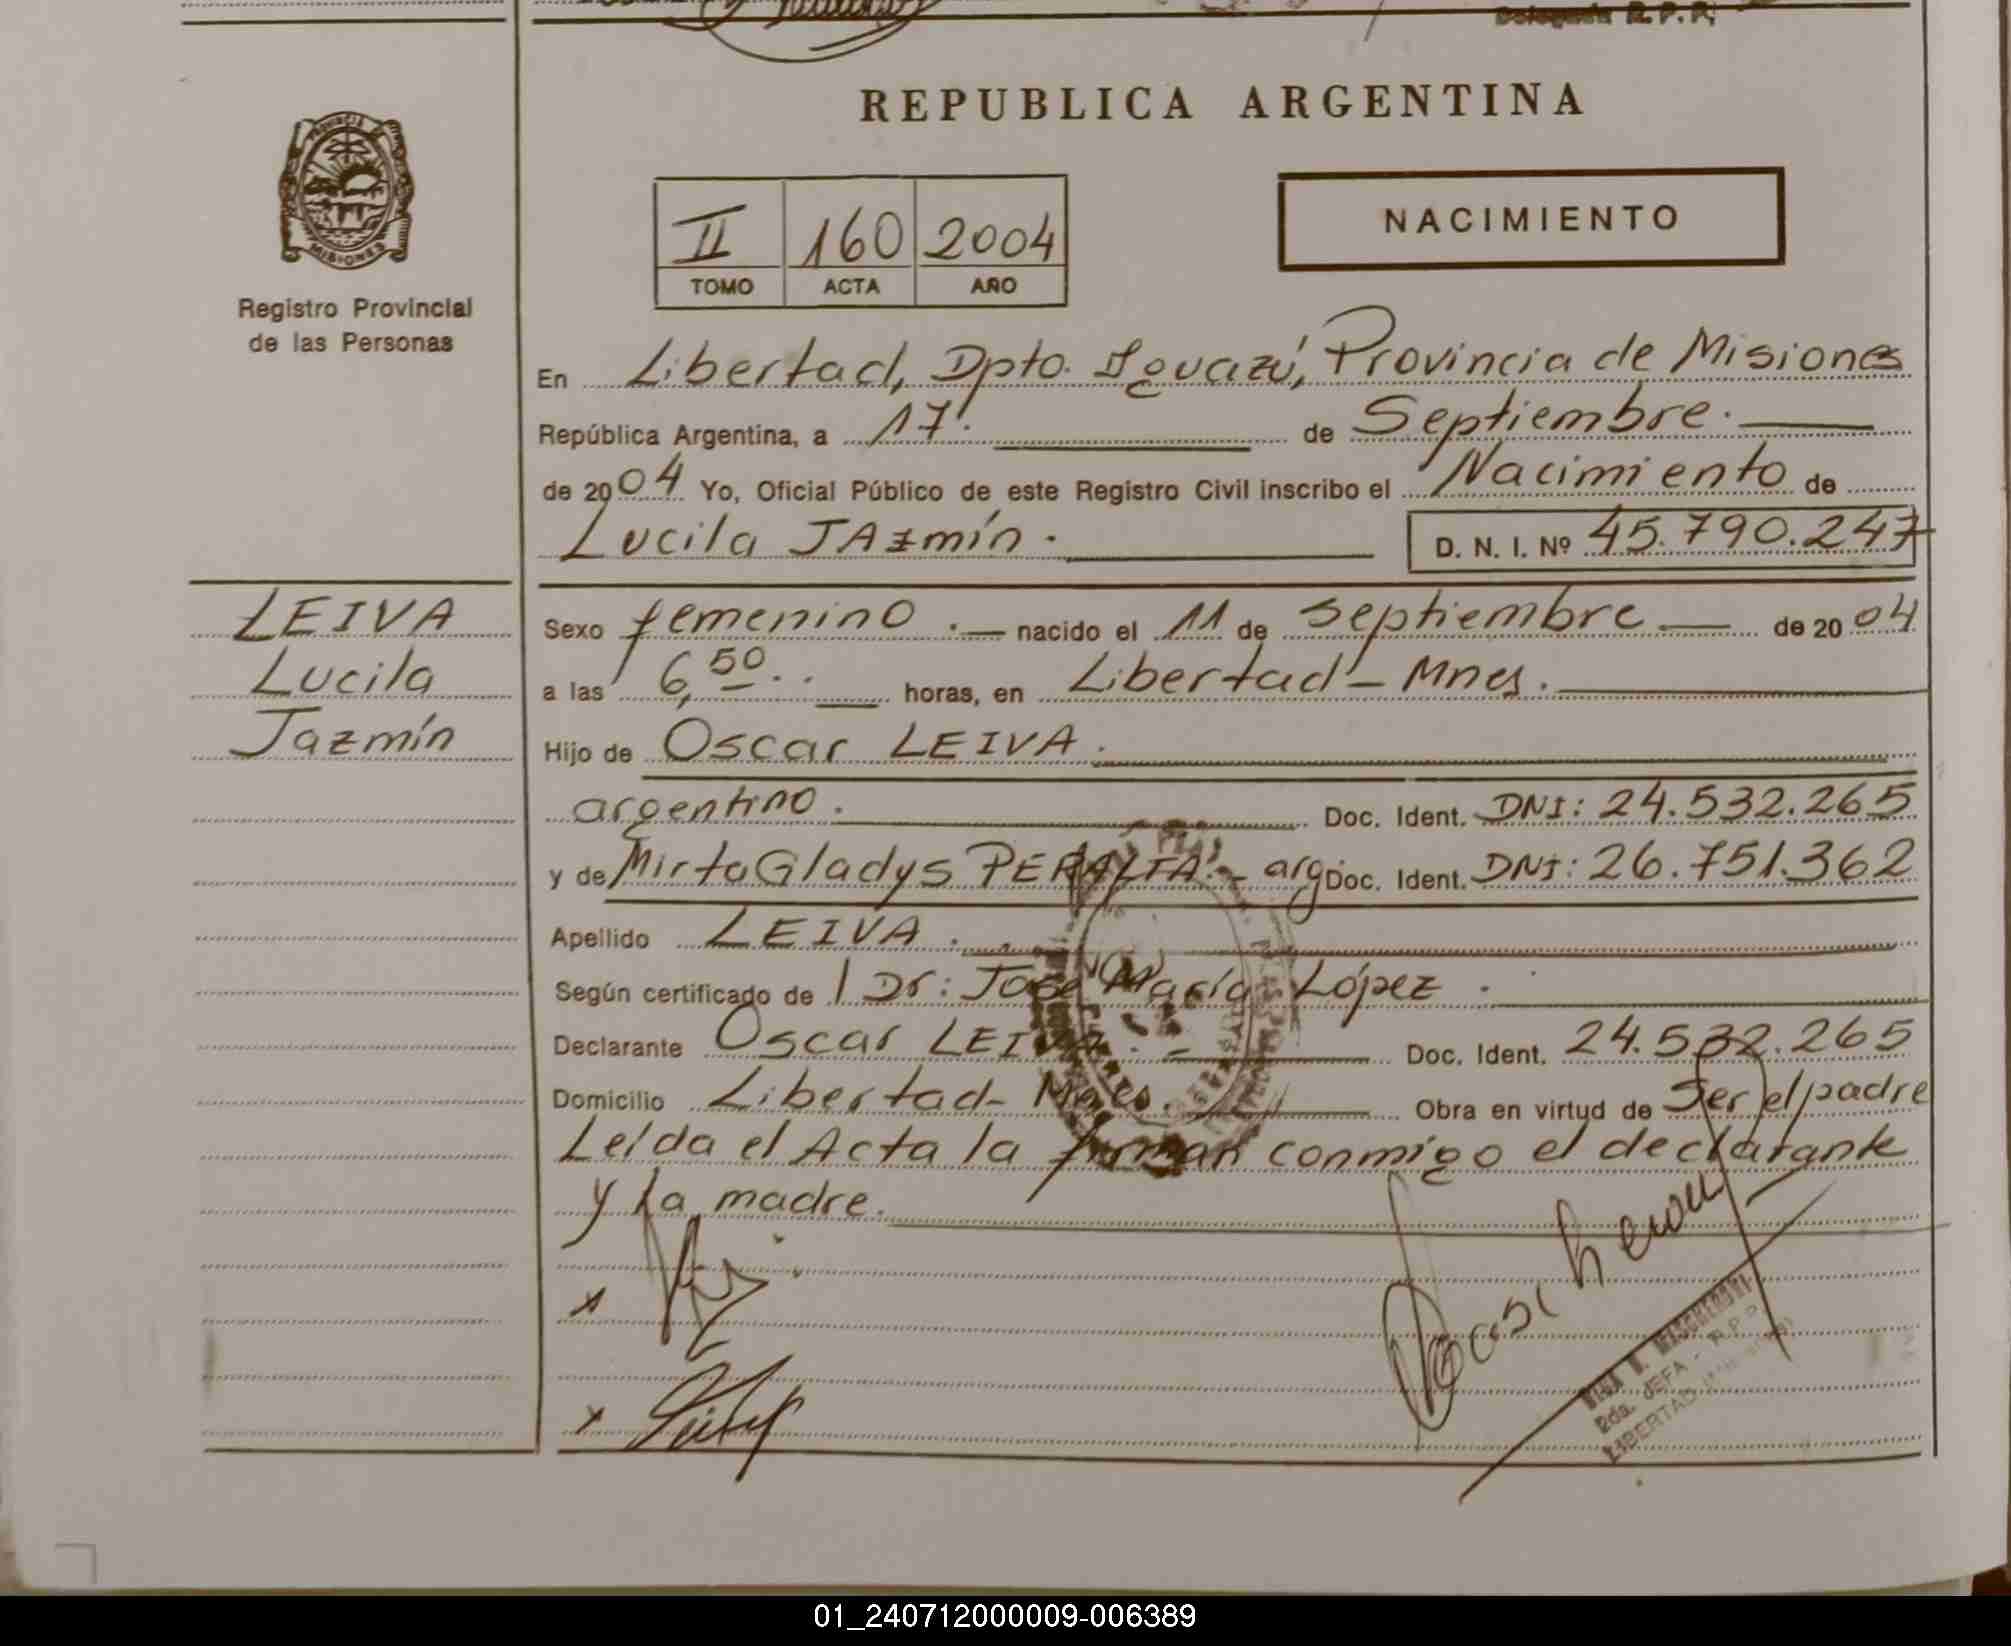 Delegada R.P.P.
REPUBLICA ARGENTINA
PROVINCIA DE
MISIONES
Registro Provincial
de las Personas
II 160 2004
TOMO ACTA AÑO
NACIMIENTO
En Libertad, Dpto. Iguazú, Provincia de Misiones
República Argentina, a 17. de Septiembre.
de 2004 Yo, Oficial Público de este Registro Civil inscribo el Nacimiento de
Lucila JAzmín. D. N. I. Nº 45.790.247
LEIVA
Lucila
Jazmín
Sexo femenino. nacido el 11 de septiembre de 2004
a las 6,50 horas, en Libertad - Mnes.
Hijo de Oscar LEIVA.
argentino. Doc. Ident. DNI: 24.532.265
y de Mirta Gladys PERALTA.- arg Doc. Ident. DNI: 26.751.362
Apellido LEIVA.
Según certificado de l Dr: José María López.
Declarante Oscar LEIVA. Doc. Ident. 24.532.265
Domicilio Libertad - Mnes. Obra en virtud de Ser el padre
Leída el Acta la firman conmigo el declarante
y la madre.
x
x
2da. JEFA - R.P.P.
LIBERTAD (Misiones)
01_240712000009-006389